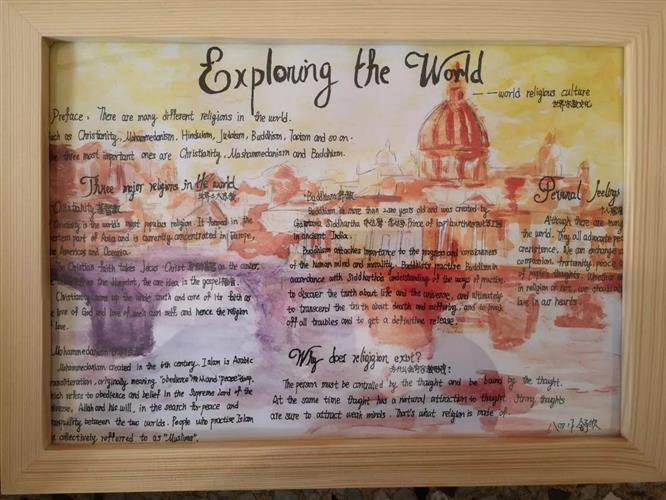 Exploring the World
——world religious culture
世界宗教文化
Preface: There are many different religions in the world.
such as Christianity, Mahammedanism, Hinduism, Judaism, Buddhism, Taoism and so on.
three most important ones are Christianity, Mashammedanism and Buddhism.
Three major religions in the world
世界三大宗教
Christianity 基督教
Christianity is the world's most populous religion. It formed in the
western part of Asia and is currently concentrated in Europe,
the Americas and Oceania.
The Christian faith takes Jesus Christ as the center,
as the blueprint, the core idea is the gospel
Christianity sums up the whole truth and core of its faith as
love of God and love of one's own self, and hence the religion
love.
Mohammedanism
Mohammedanism created in the 6th century. Islam is Arabic
transliteration, originally meaning "obedience" and "peace"
which refers to obedience and belief in the Supreme Lord of the
universe, Allah and his will, in the search for peace and
tranquility between the two worlds. People who practise Islam
collectively reffered to as "Muslims".
Buddhism 佛教
Buddhism is more than 2,500 years old and was created by
Siddhartha Prince of
in ancient India.
Buddhism attaches importance to the progress and consciousness
of the human mind and morality. Buddhists practise Buddhism in
accordance with Siddhartha's understanding of the ways of practice,
to discover the truth about life and the universe, and ultimately
to transcend the truth about death and suffering, and to break
off all troubles and to get a definitive release.
Why does religigion exist?
为什么会有宗教呢:
The person must be controlled by the thought and be bound by the thought.
At the same time thought has a natural attraction to thought. Strong thoughts
are sure to attract weak minds. That's what religion is made of.
Personal feelings
Although there are many
the world. They all advocate
coexistence. We can exchange
compassion, fraternity,
of people's thoughts. Whether
in religion or not, we should
love in our hearts